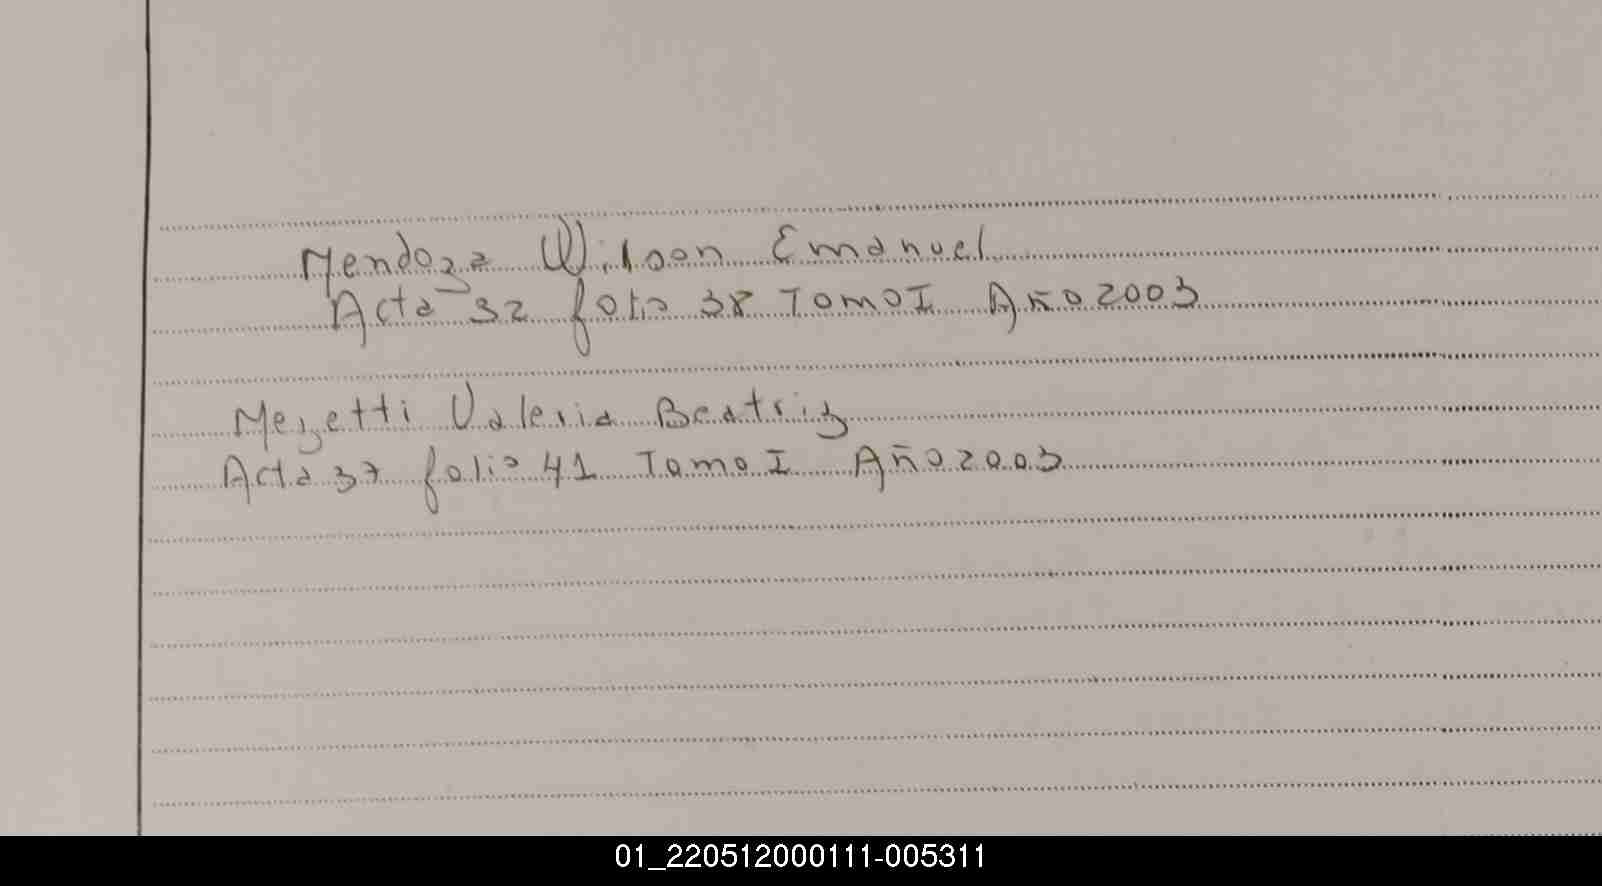 Mendoza Wilson Emanuel
Acta 32 folio 38 Tomo I Año 2003
Mezetti Valeria Beatriz
Acta 37 folio 41 Tomo I Año 2003
01_220512000111-005311